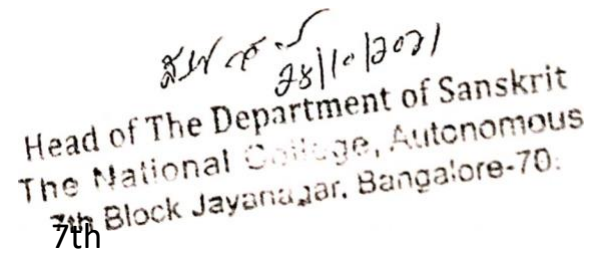 28/10/2021
Head of The Department of Sanskrit
The National College, Autonomous
7th Block Jayanagar, Bangalore-70.
7th